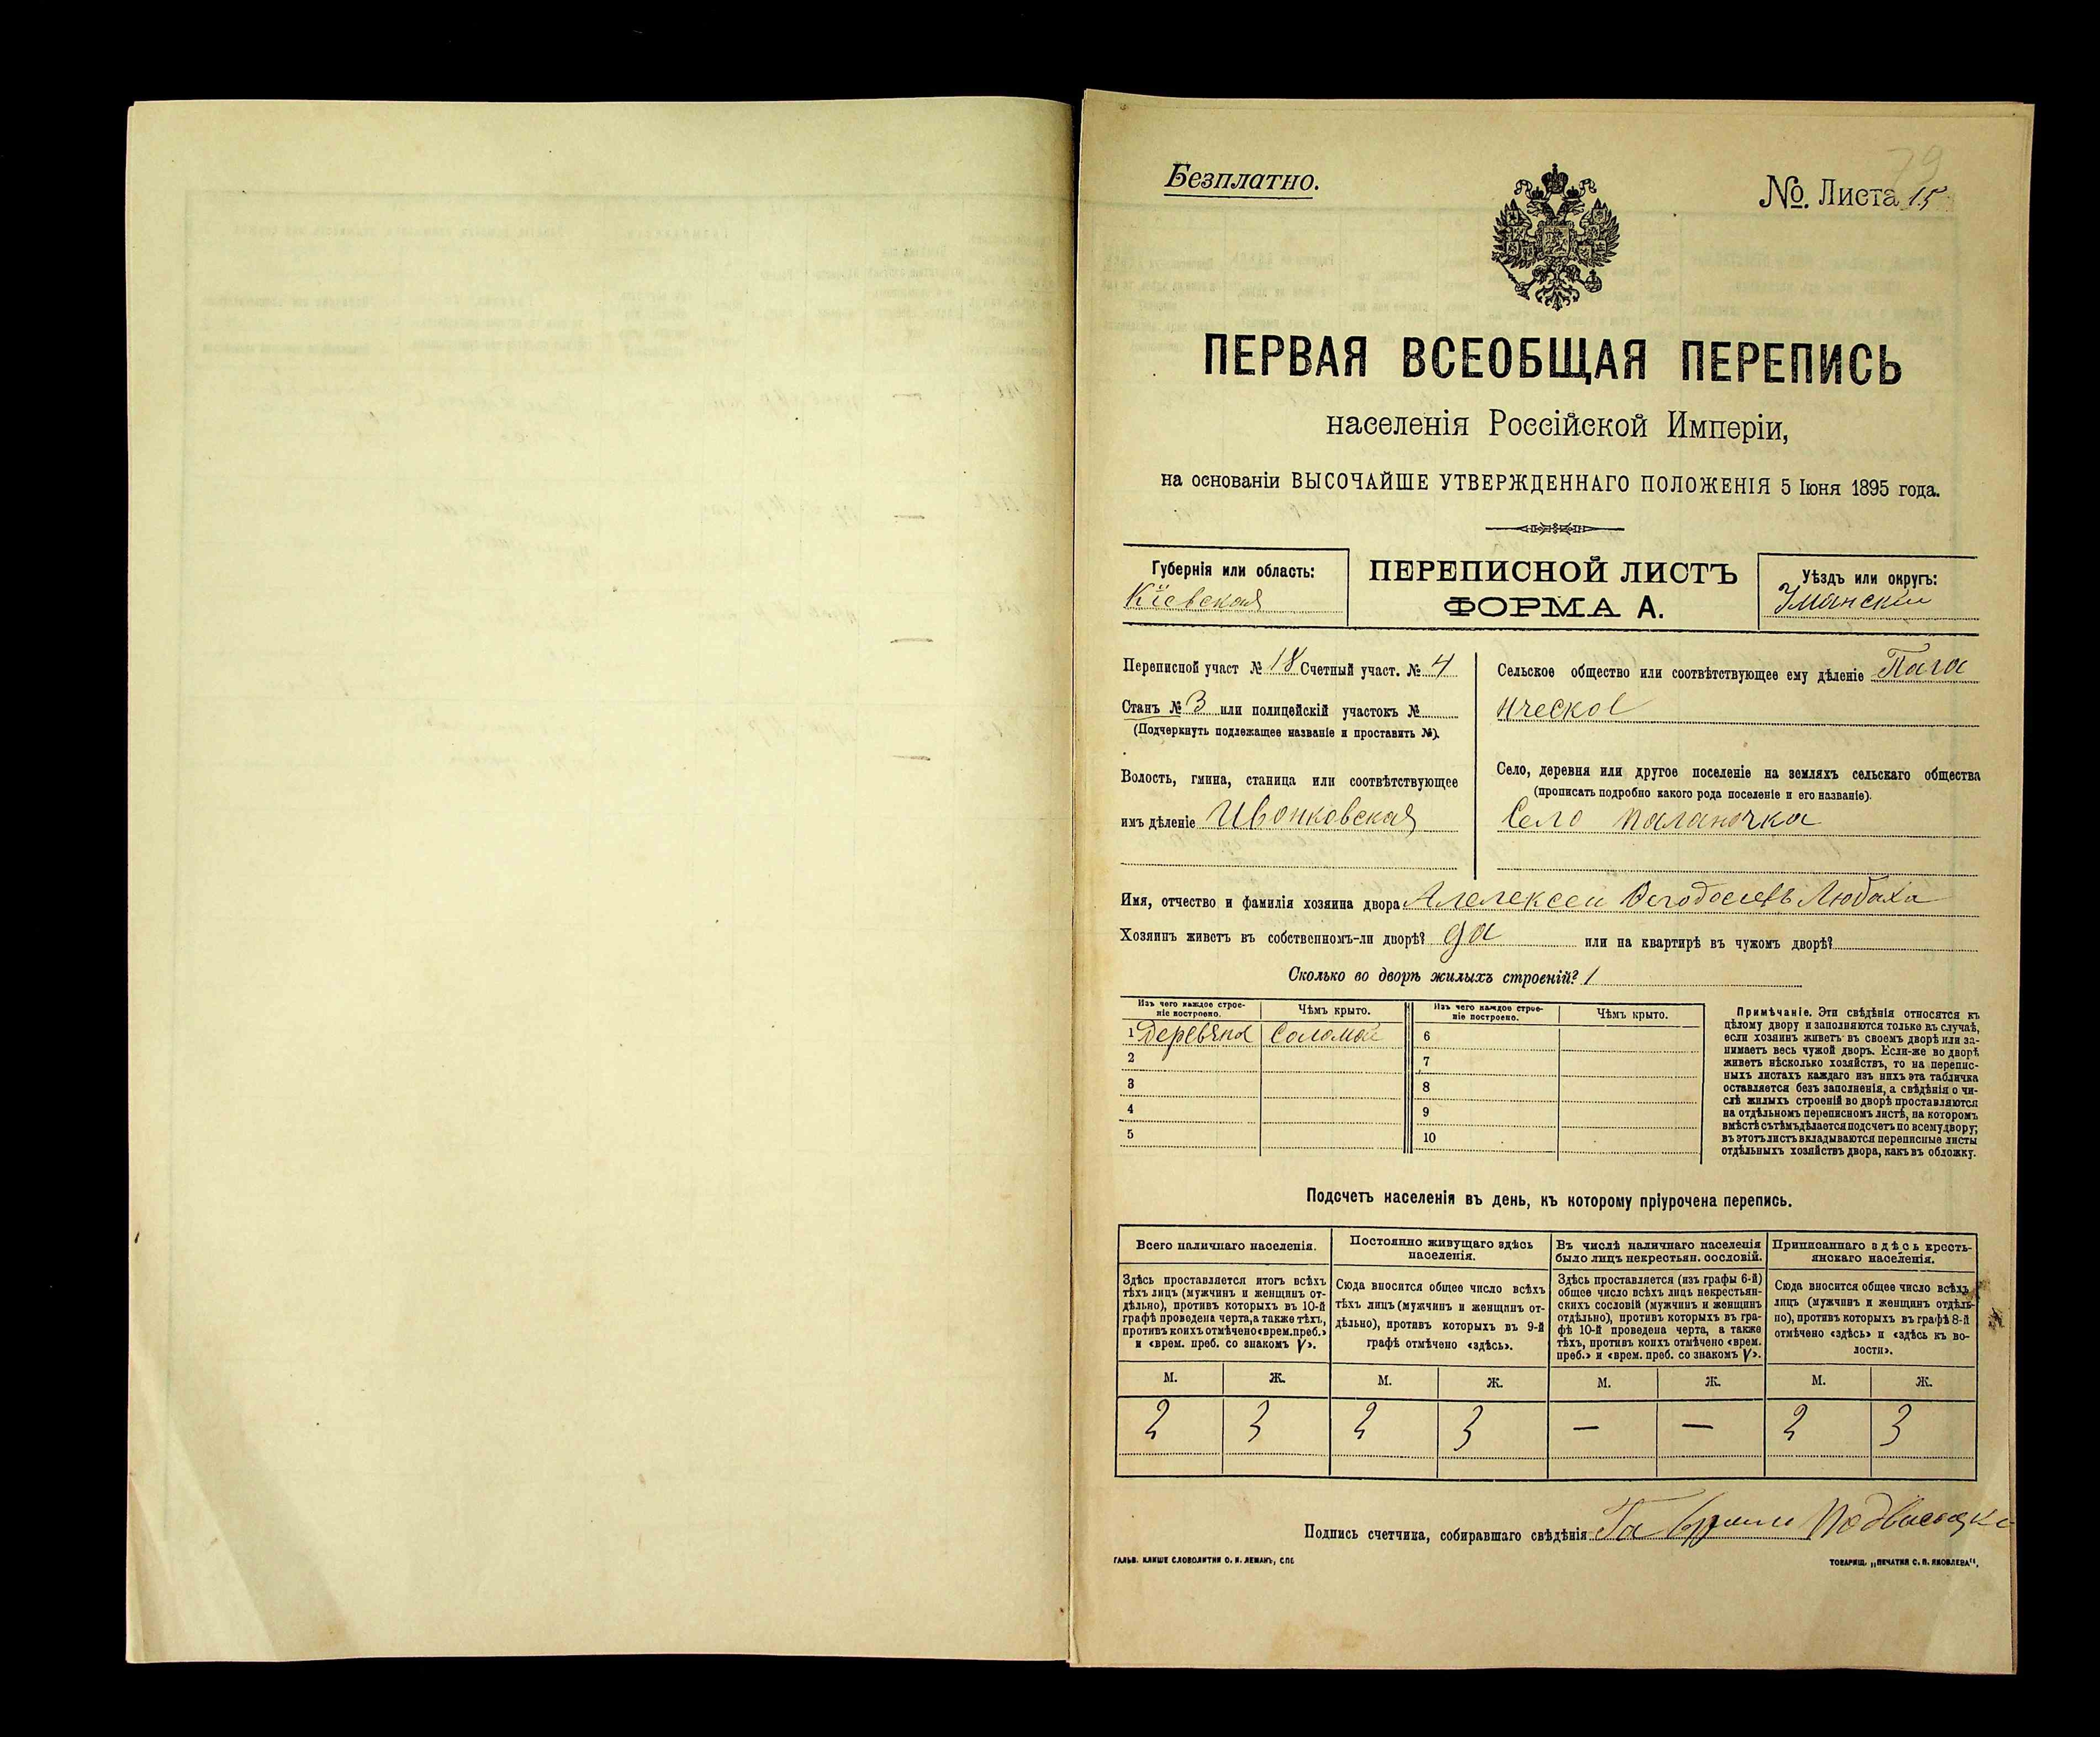 79
Безплатно.
№. Листа 15
ПЕРВАЯ ВСЕОБЩАЯ ПЕРЕПИСЬ
населенія Россійской Имперіи,
на основаніи ВЫСОЧАЙШЕ УТВЕРЖДЕННАГО ПОЛОЖЕНІЯ 5 Іюня 1895 года.
Губернія или область:
Кіевская
ПЕРЕПИСНОЙ ЛИСТЪ
ФОРМА А.
Уѣздъ или округъ:
Уманскій
Переписной участ № 18 Счетный участ. № 4
Станъ № 3 или полицейскій участокъ №
(Подчеркнуть подлежащее названіе и проставить №).
Волость, гмина, станица или соотвѣтствующее
имъ дѣленіе Ивонковская
Сельское общество или соотвѣтствующее ему дѣленіе
Село, деревня или другое поселеніе на земляхъ сельскаго общества
(прописать подробно какого рода поселеніе и его названіе).
Село Паланочка
Имя, отчество и фамилія хозяина двора Любаха
Хозяинъ живетъ въ собственномъ-ли дворѣ? да или на квартирѣ въ чужомъ дворѣ?
Сколько во дворѣ жилыхъ строеній? 1
Изъ чего каждое строе-
ніе построено.
Чѣмъ крыто.
Изъ чего каждое строе-
ніе построено.
Чѣмъ крыто.
1 Деревяна Соломой 6
2 7
3 8
4 9
5 10
Примѣчаніе. Эти свѣдѣнія относятся къ
цѣлому двору и заполняются только въ случаѣ,
если хозяинъ живетъ въ своемъ дворѣ или за-
нимаетъ весь чужой дворъ. Если-же во дворѣ
живетъ нѣсколько хозяйствъ, то на перепис-
ныхъ листахъ каждаго изъ нихъ эта табличка
оставляется безъ заполненія, а свѣдѣнія о чи-
слѣ жилыхъ строеній во дворѣ проставляются
на отдѣльномъ переписномъ листѣ, на которомъ
вмѣстѣ съ тѣмъ дѣлается подсчетъ по всему двору;
въ этотъ листъ вкладываются переписные листы
отдѣльныхъ хозяйствъ двора, какъ въ обложку.
Подсчетъ населенія въ день, къ которому пріурочена перепись.
Всего наличнаго населенія.
Здѣсь проставляется итогъ всѣхъ
тѣхъ лицъ (мужчинъ и женщинъ от-
дѣльно), противъ которыхъ въ 10-й
графѣ проведена черта, а также тѣхъ,
противъ коихъ отмѣчено «врем. преб.»
и «врем. преб. со знакомъ V».
Постоянно живущаго здѣсь
населенія.
Сюда вносится общее число всѣхъ
тѣхъ лицъ (мужчинъ и женщинъ от-
дѣльно), противъ которыхъ въ 9-й
графѣ отмѣчено «здѣсь».
Въ числѣ наличнаго населенія
было лицъ некрестьян. сословій.
Здѣсь проставляется (изъ графы 6-й)
общее число всѣхъ лицъ некрестьян-
скихъ сословій (мужчинъ и женщинъ
отдѣльно), противъ которыхъ въ гра-
фѣ 10-й проведена черта, а также
тѣхъ, противъ коихъ отмѣчено «врем.
преб.» и «врем. преб. со знакомъ V».
Приписаннаго здѣсь кресть-
янскаго населенія.
Сюда вносится общее число всѣхъ
лицъ (мужчинъ и женщинъ отдѣль-
но), противъ которыхъ въ графѣ 8-й
отмѣчено «здѣсь» и «здѣсь къ во-
лости».
М. Ж. М. Ж. М. Ж. М. Ж.
2 3 2 3 — — 2 3
Подпись счетчика, собиравшаго свѣдѣнія
ГАЛЬВ. КЛИШЕ СЛОВОЛИТНИ О. И. ЛЕМАНЪ, СПБ
ТОВАРИЩ. „ПЕЧАТНЯ С. П. ЯКОВЛЕВА“.